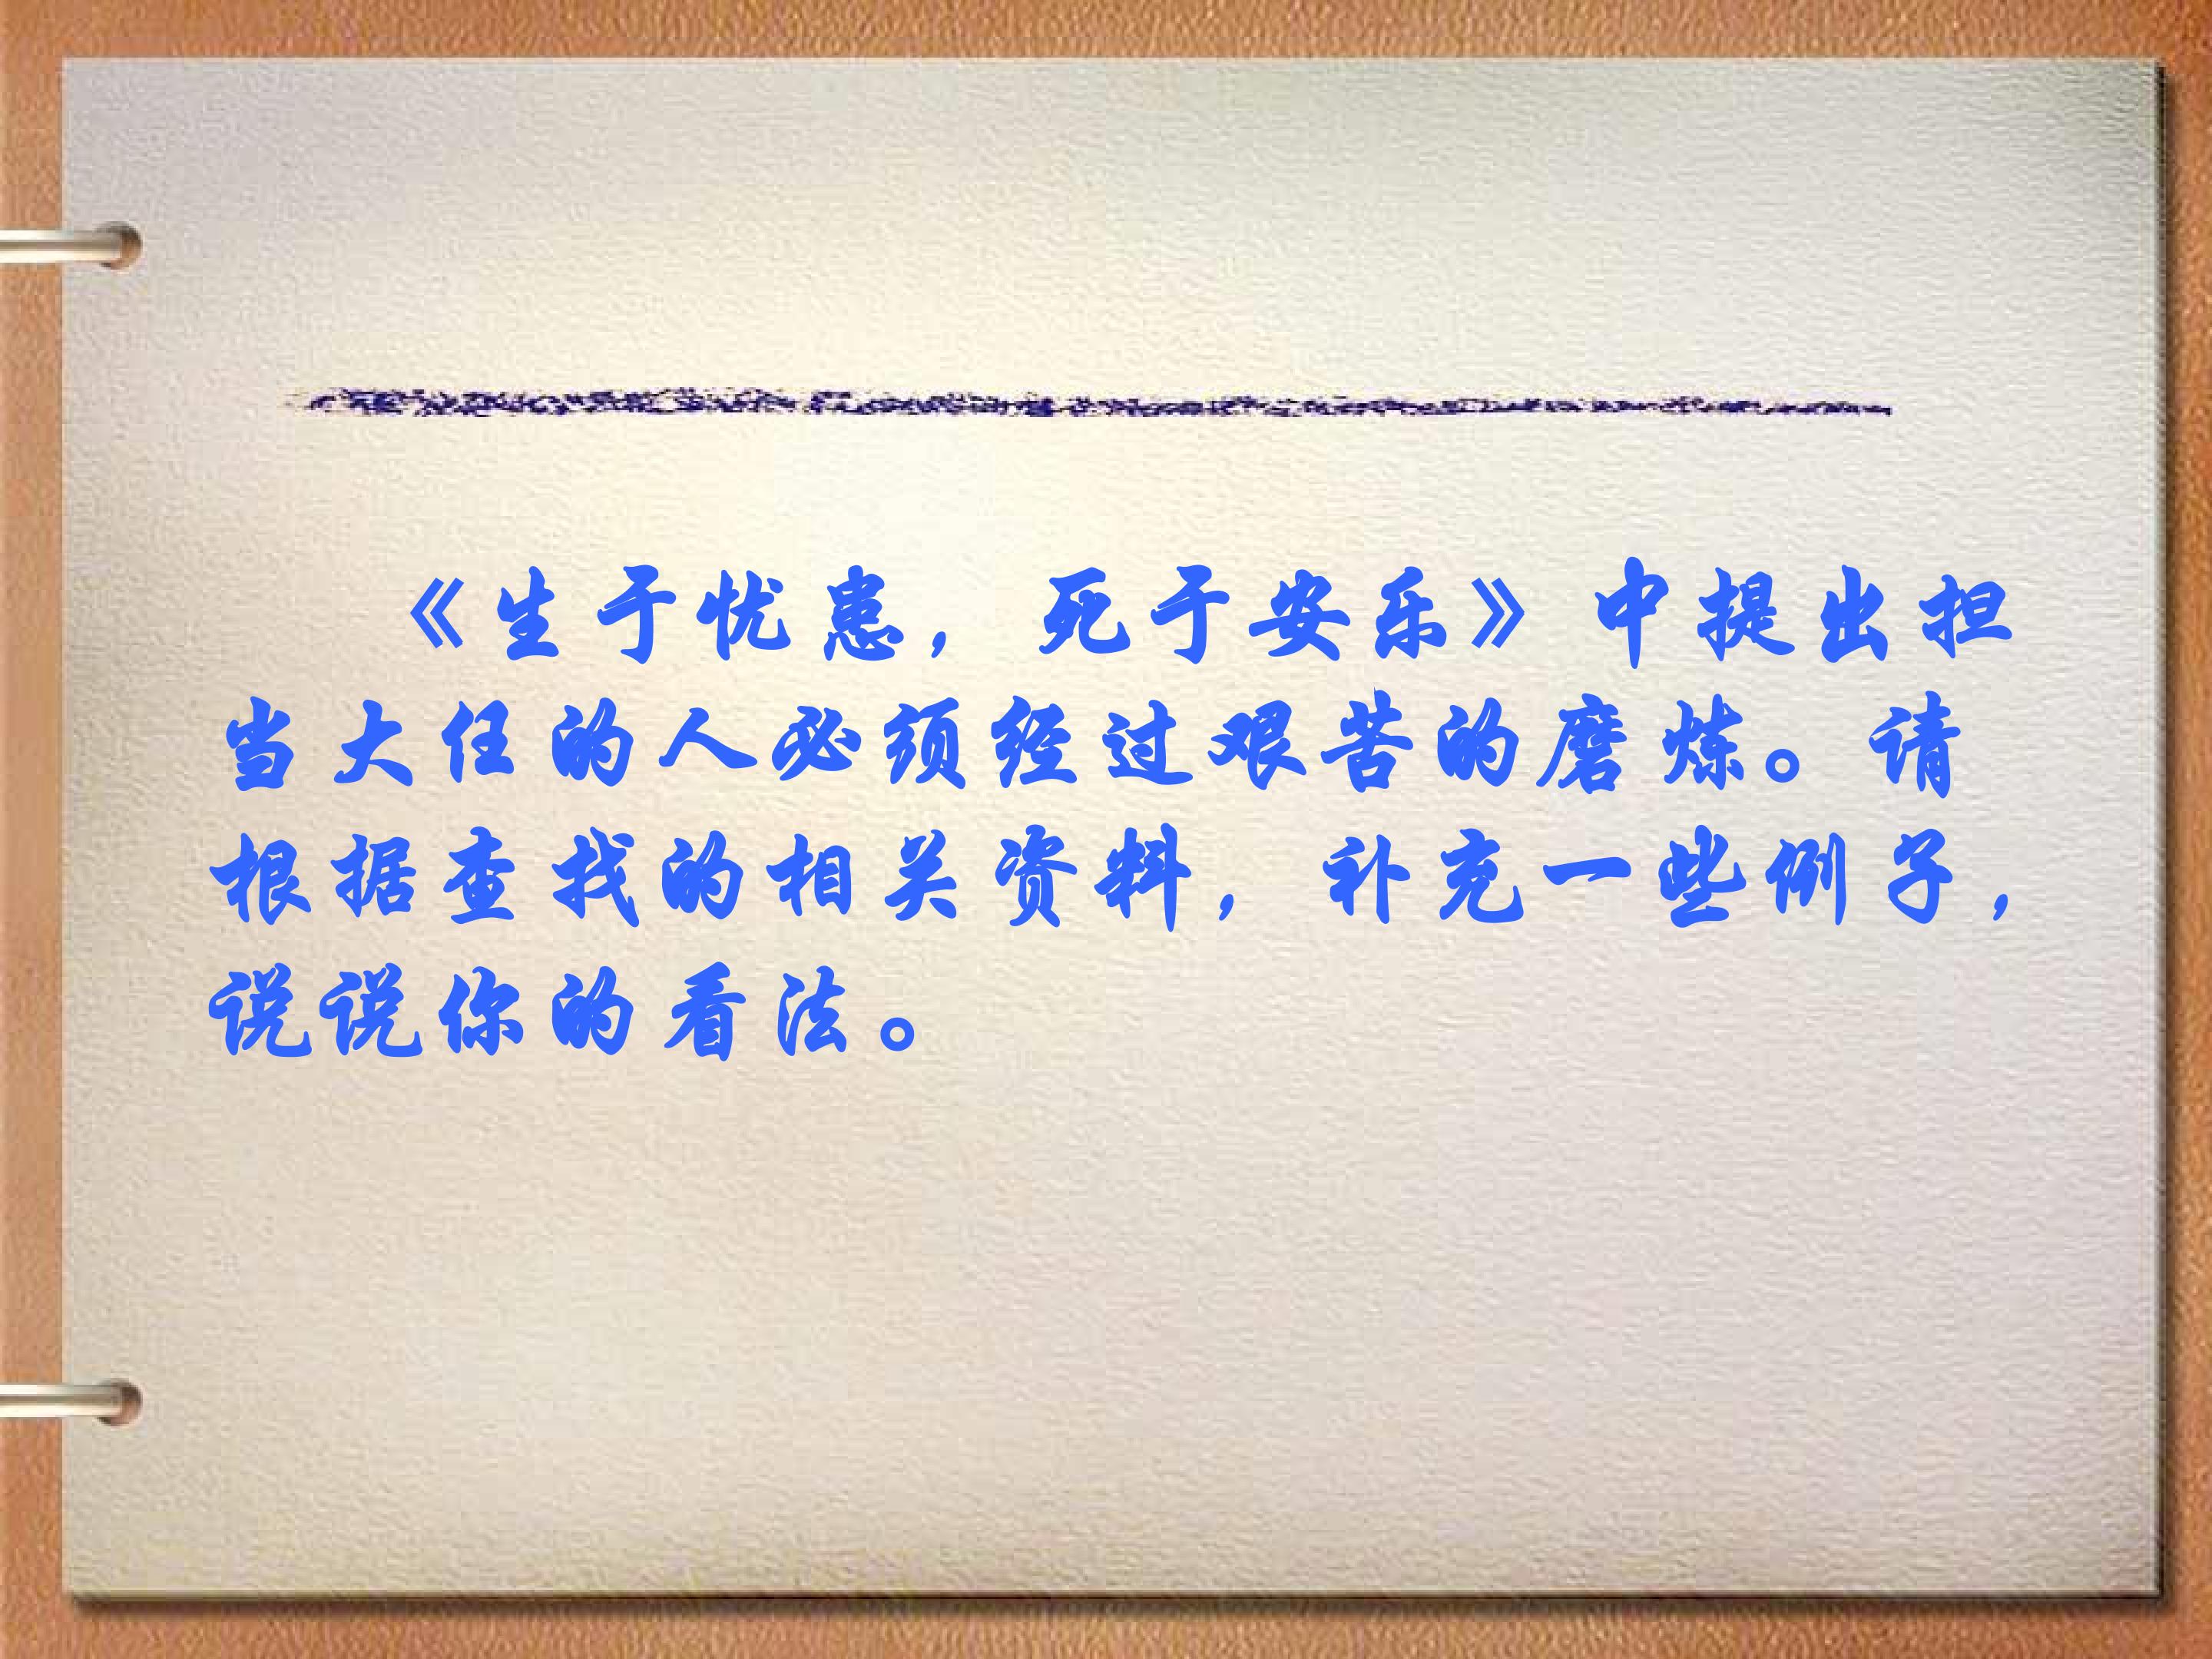 《生于忧患，死于安乐》中提出担
当大任的人必须经过艰苦的磨炼。请
根据查找的相关资料，补充一些例子，
说说你的看法。